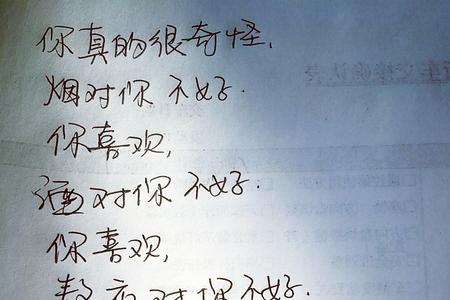 你真的很奇怪,
烟对你不好.
你喜欢,
酒对你不好.
你喜欢,
熬夜对你不好.